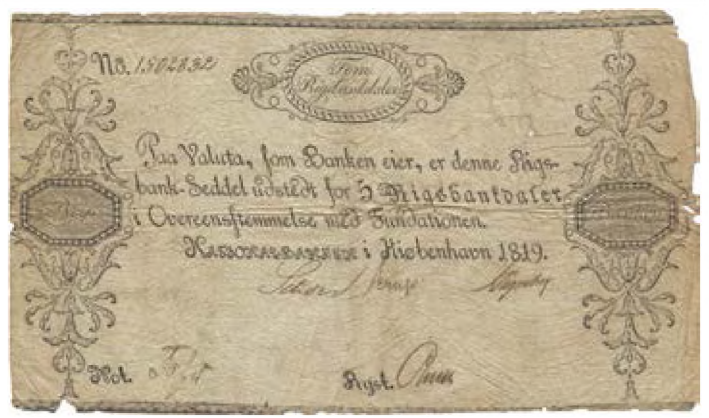 No. 1502832
Fem
Rigsbankdaler
Paa Valuta, som Banken eier, er denne Rigs-
bank-Seddel udstedt for 5 Rigsbankdaler
i Overeensstemmelse med Fundationen.
NATIONALBANKEN i Kiøbenhavn 1819.
Not.
Rgst.